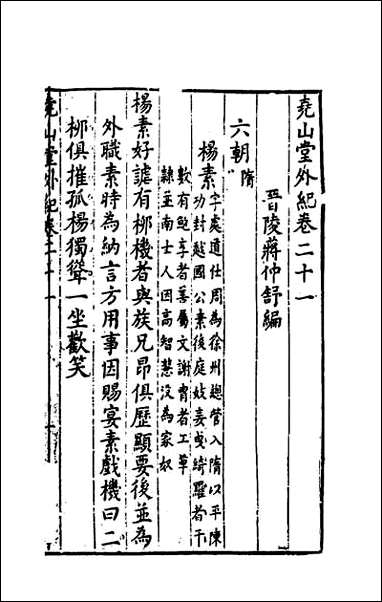 堯山堂外紀卷二十一
晉陵蔣仲舒編
六朝 隋
楊素 字處道仕周為徐州總管入隋以平陳
功封越國公素後庭妓妾曳綺羅者千
數有鮑亨者善屬文謝胄者工草
隸並南士人因高智慧沒為家奴
楊素好謔有柳機者與族兄昂俱歷顯要後並為
外職素時為納言方用事因賜宴素戲機曰二
柳俱摧孤楊獨聳一坐歡笑
堯山堂外紀卷二十一
一